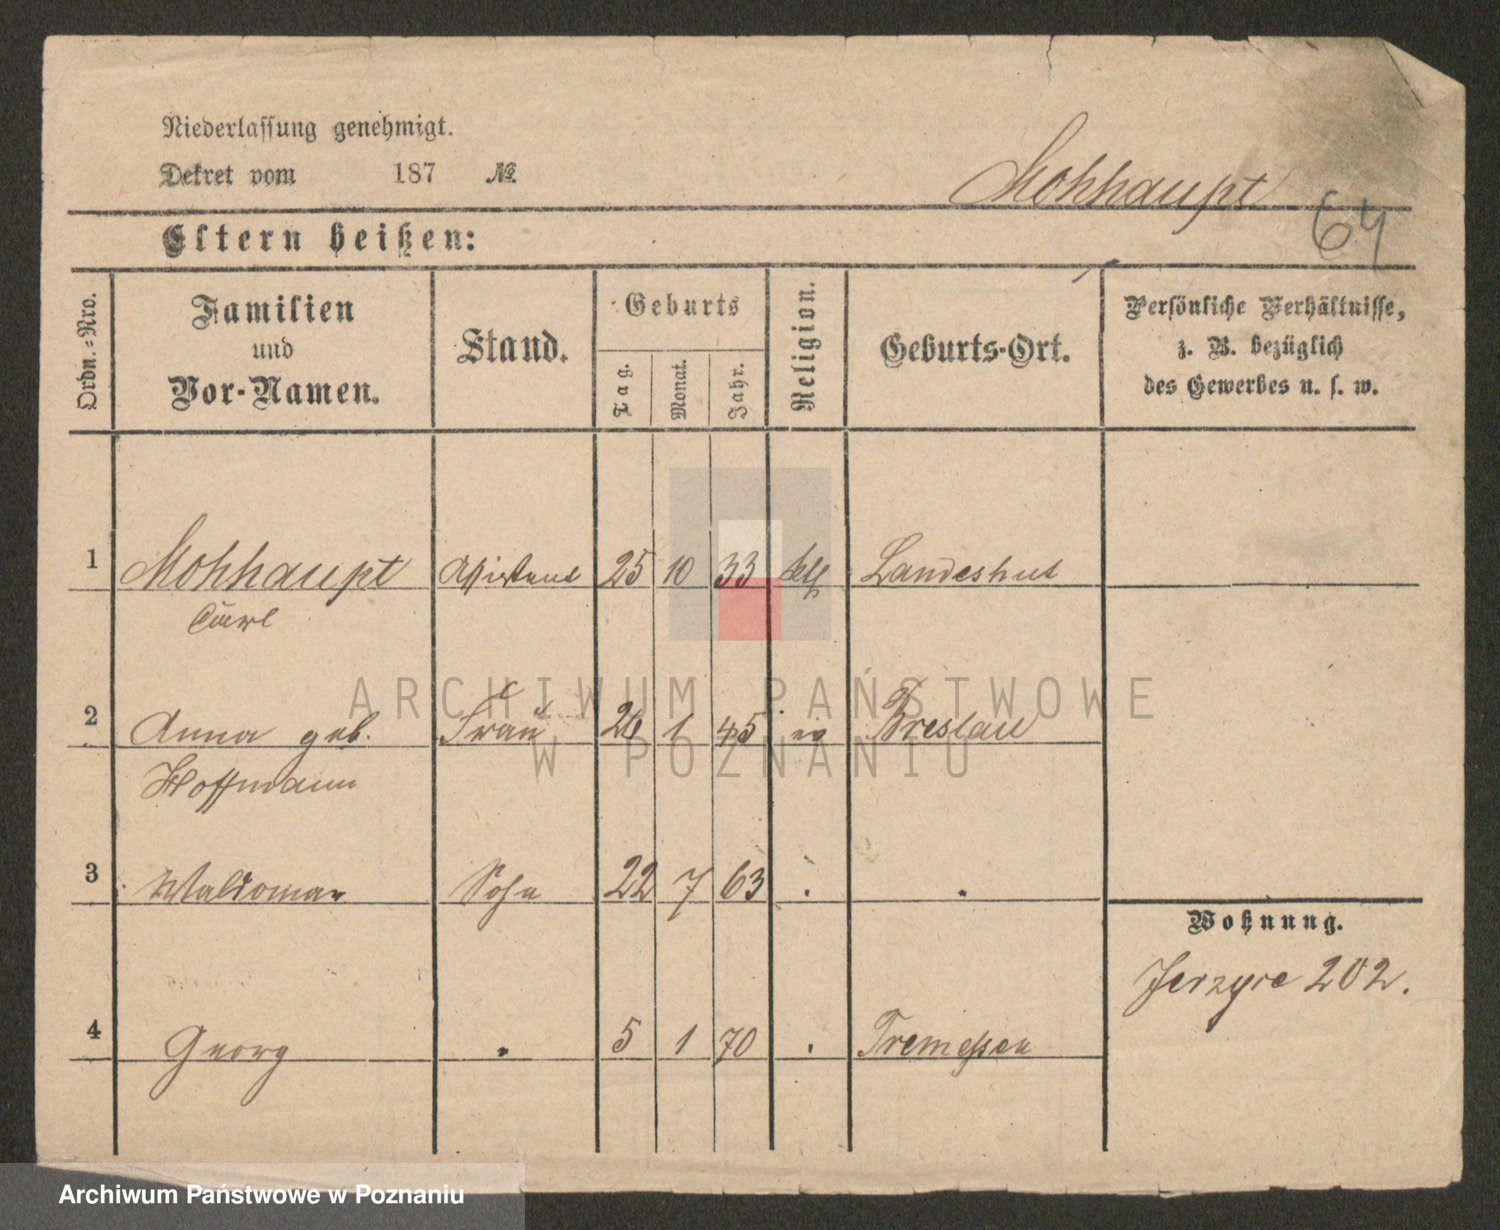 Niederlassung genehmigt.
Dekret vom 187 №
Mohhaupt
64
Eltern heißen:
Ordn.-Nro.
Familien und Vor-Namen.
Stand.
Geburts
Tag. Monat. Jahr.
Religion.
Geburts-Ort.
Persönliche Verhältnisse,
z. B. bezüglich
des Gewerbes u. s. w.
1 Mohhaupt Assistent 25 10 33 kth Landeshut
Carl
2 Anna geb. Frau 1 45 ev Breslau
Hoffmann
3 Waldomar Sohn 22 7 63 . "
Wohnung.
Jerzyce 202.
4 Georg " 5 1 70 . Tremessen
ARCHIWUM PAŃSTWOWE
W POZNANIU
Archiwum Państwowe w Poznaniu